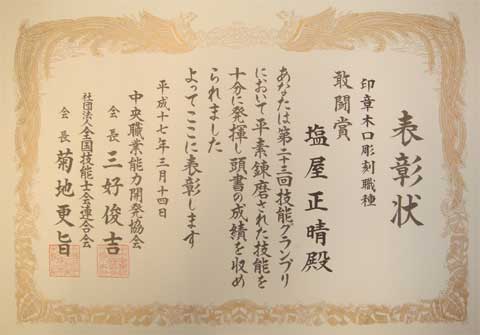 表彰状
印章木口彫刻職種
敢闘賞
塩屋正晴殿
あなたは第二十三回技能グランプリ
において平素錬磨された技能を
十分に発揮し頭書の成績を収め
られました
よってここに表彰します
平成十七年三月十四日
中央職業能力開発協会
会長 三好俊吉
社団法人全国技能士会連合会
会長 菊地更旨